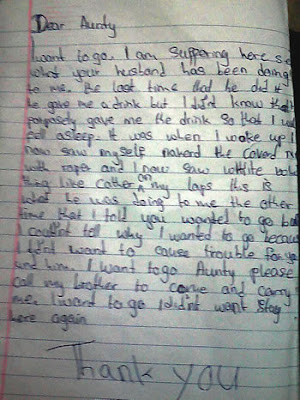 Dear Aunty
I want to go. I am suppering here se
what your husband has been doing
to me. the last time that he did it
he gave me a drink but I didnt know that
purposely gave me the drink so that I wou
fall asleep. It was when I woke up I
now saw myself naked the covered my
with raper and I now saw white wa
thing like Cather on my laps this is
what he was doing to me the other
time that I told you wanted to go bac
I couldn't tell why I wanted to go becau
I didnt want to cause trouble for you
and him. I want to go Aunty please
call my brother to come and carry
me. I want to go I didnt want stay
here again
Thank you